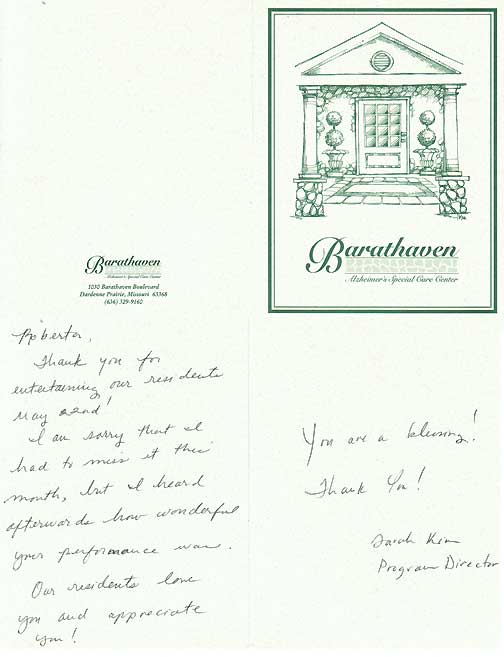 Barathaven
Alzheimer's Special Care Center
Barathaven
Alzheimer's Special Care Center
1030 Barathaven Boulevard
Dardenne Prairie, Missouri 63368
(636) 329-9160
Roberta,
Thank you for
entertaining our residents
May 22nd!
I am sorry that I
had to miss it this
month, but I heard
afterwards how wonderful
your performance was.
Our residents love
you and appreciate
you!
You are a blessing!
Thank You!
Sarah Kim
Program Director